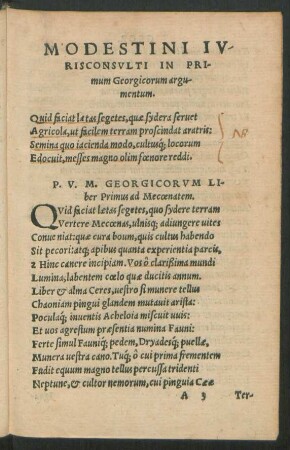 MODESTINI IV-
RISCONSVLTI IN PRI-
mum Georgicorum argu-
mentum.
Quid faciat lætas segetes, quæ sydera seruet
Agricola, ut facilem terram proscindat aratris:
Semina quo iacienda modo, cultusq; locorum
Edocuit, messes magno olim fœnore reddi.
P. V. M. GEORGICORVM LI-
ber Primus ad Mecœnatem.
QVid faciat lætas segetes, quo sydere terram
Vertere Mecœnas, ulmisq; adiungere uites
Conueniat: quæ cura boum, quis cultus habendo
Sit pecori: atq; apibus quanta experientia parcis,
Hinc canere incipiam. Vos ô clarissima mundi
Lumina, labentem cœlo quæ ducitis annum.
Liber & alma Ceres, uestro si munere tellus
Chaoniam pingui glandem mutauit arista:
Poculaq; inuentis Acheloia miscuit uuis:
Et uos agrestum præsentia numina Fauni:
Ferte simul Fauniq; pedem, Dryadesq; puellæ,
Munera uestra cano. Tuq; ô cui prima frementem
Fudit equum magno tellus percussa tridenti
Neptune, & cultor nemorum, cui pinguia Cææ
A 3 Ter-